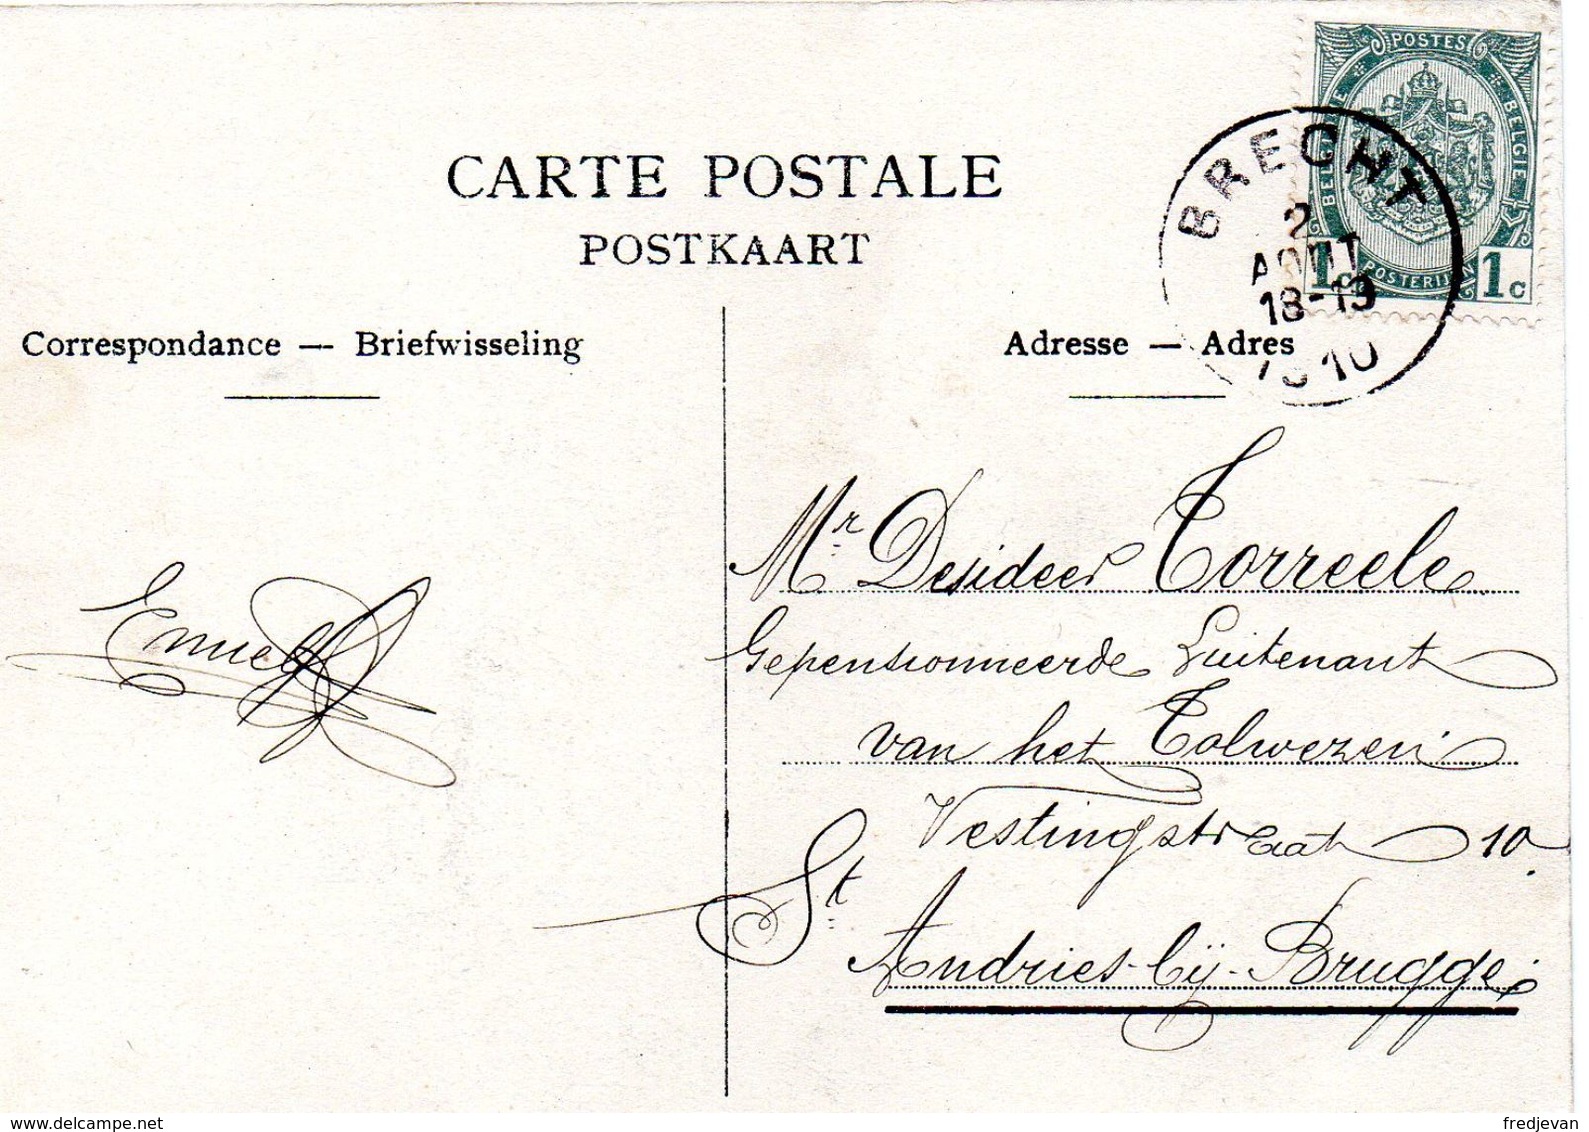 POSTES
BELGIQUE BELGIE
POSTERIJEN
1c 1c
BRECHT
2
AOUT
18-19
1910
CARTE POSTALE
POSTKAART
Correspondance — Briefwisseling
Adresse — Adres
Mr Desideer Torreele
Gepensionneerde Luitenant
van het Tolwezen
Vestingstraat 10.
St Andries-bij-Brugge.
delcampe.net
fredjevan